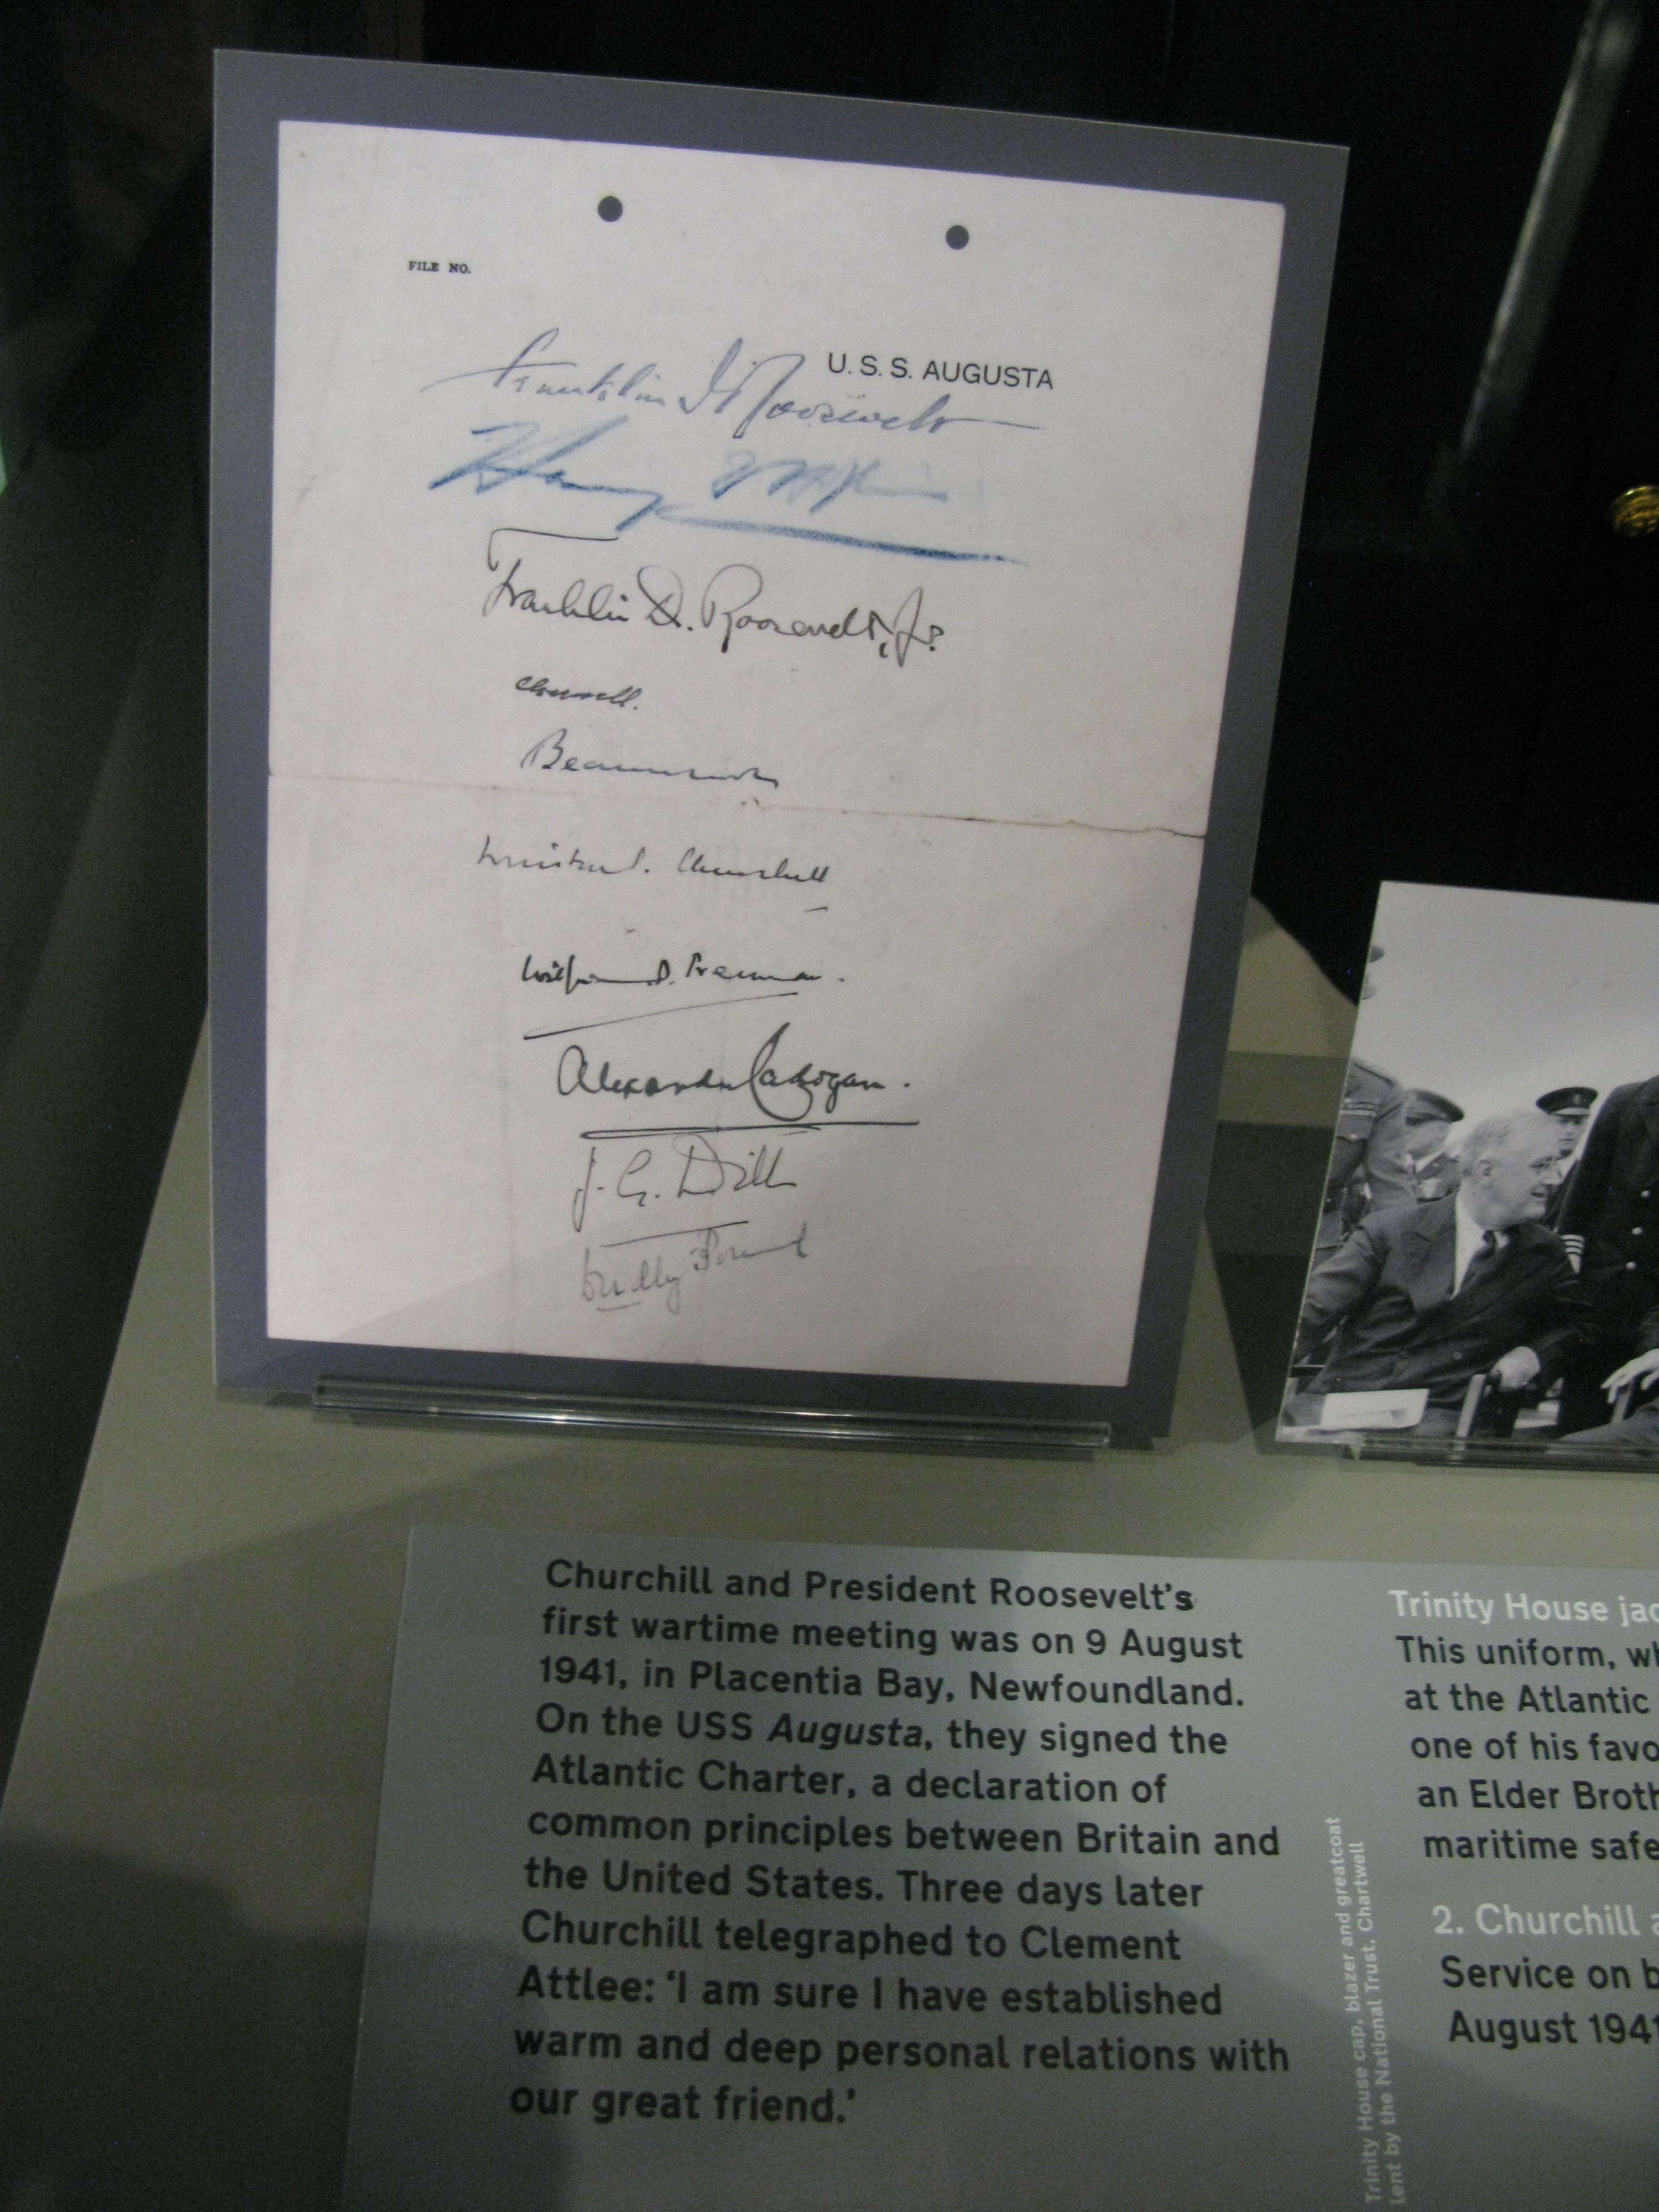 FILE NO.
U.S.S. AUGUSTA
Franklin D Roosevelt
Harry
Franklin D. Roosevelt, Jr.
Winston S. Churchill
Wilfrid R. Freeman.
Alexander Cadogan.
J. G. Dill
Dudley Pound
Churchill and President Roosevelt's
first wartime meeting was on 9 August
1941, in Placentia Bay, Newfoundland.
On the USS Augusta, they signed the
Atlantic Charter, a declaration of
common principles between Britain and
the United States. Three days later
Churchill telegraphed to Clement
Attlee: ‘I am sure I have established
warm and deep personal relations with
our great friend.’
Trinity House cap, blazer and greatcoat
Lent by the National Trust, Chartwell
Trinity House jac
This uniform, wh
at the Atlantic
one of his favo
an Elder Broth
maritime safe
2. Churchill a
Service on b
August 1941